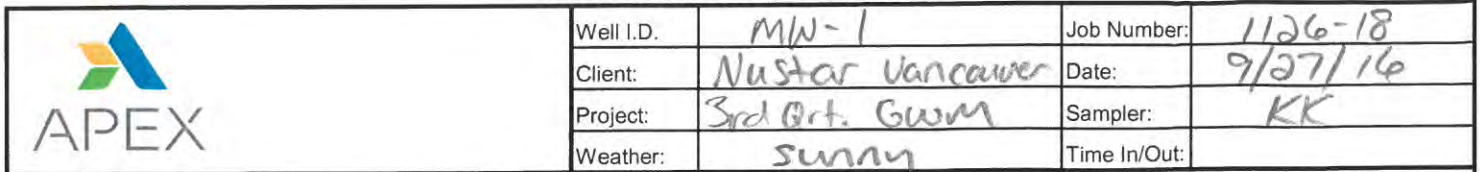 Well I.D. MW-1 Job Number: 1126-18
Client: NuStar Vancouver Date: 9/27/16
APEX
Project: 3rd Qrt. GWM Sampler: KK
Weather: Sunny Time In/Out: